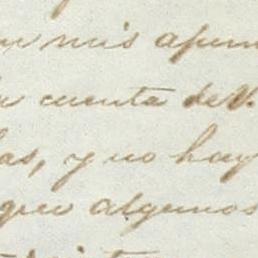 mis apun
cuenta de V.
las, y no hay
algunos